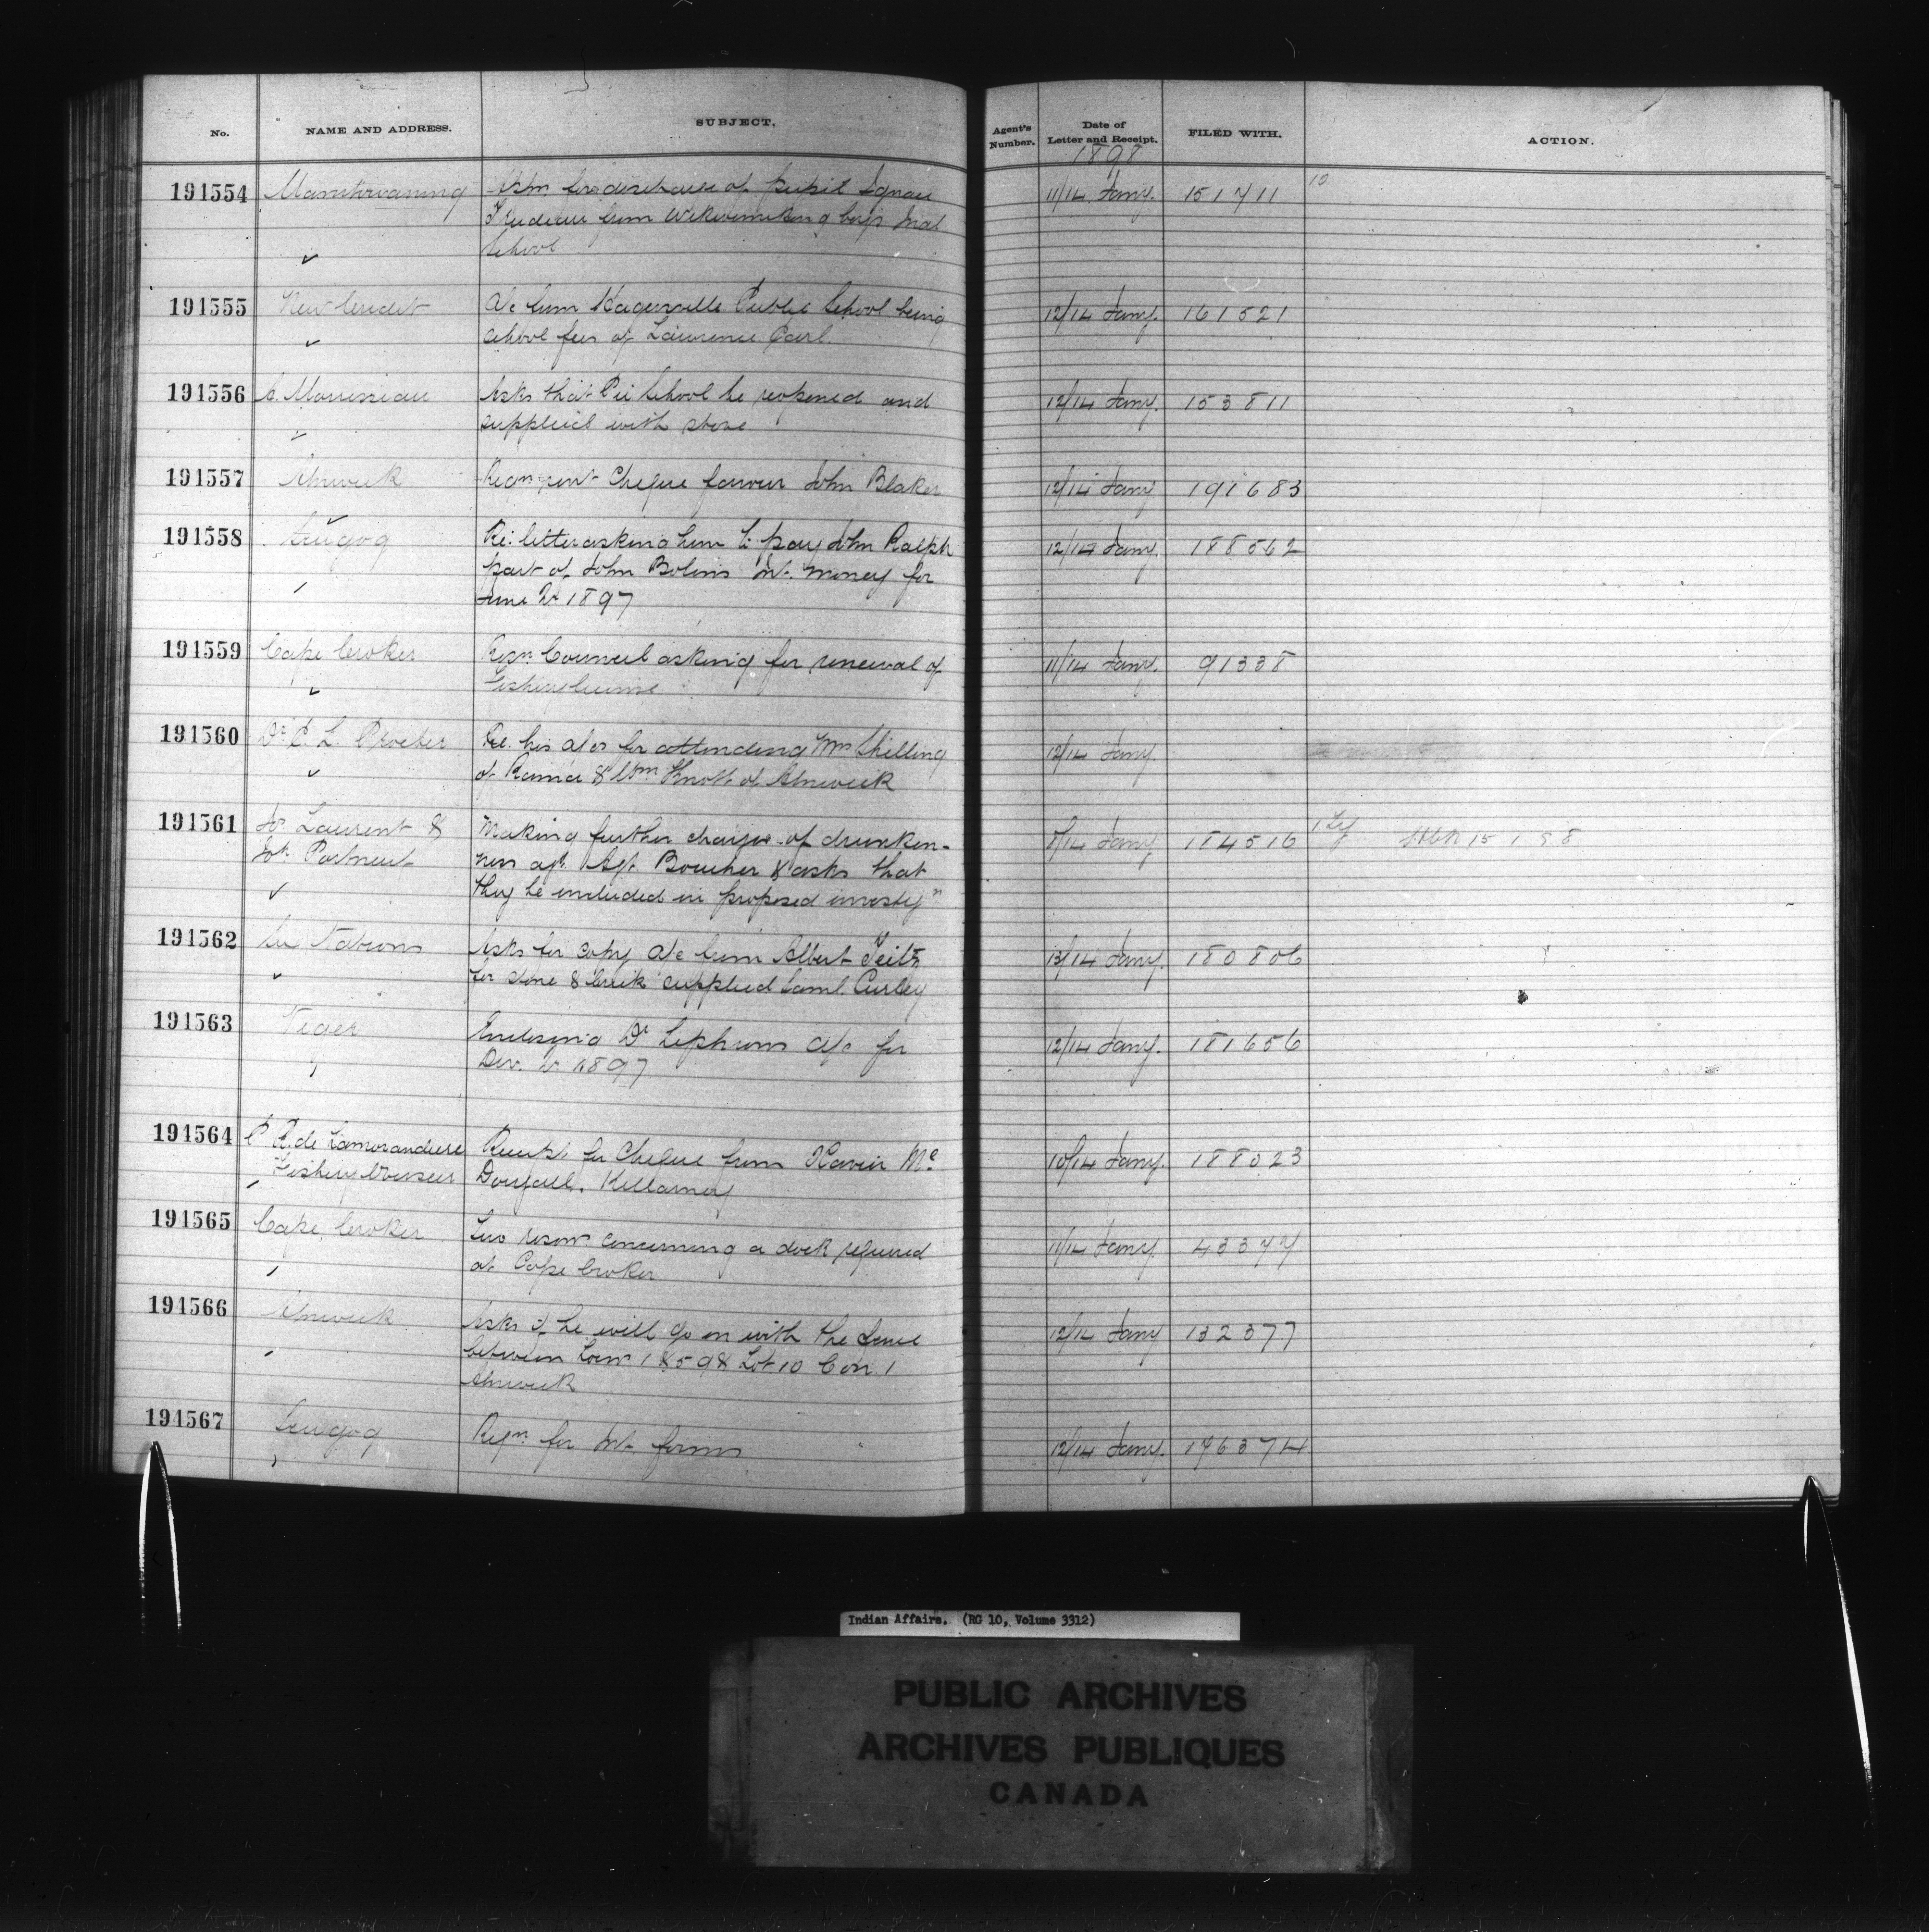 No. NAME AND ADDRESS. SUBJECT. Agent's Number. Date of Letter and Receipt. FILED WITH. ACTION.
1898
191554 Manitowaning Apln for discharge of pupil Ignace 11/14 Jany. 151711 10
Trudeau from Wikwemikong boys Indl
School
191555 New Credit A/c from Hagersville Public School being 12/14 Jany. 161521
school fees of Lawrence Earl.
191556 Asks that Pei School be reopened and 12/14 Jany. 153811
supplied with stove
191557 Alnwick Cheque favour John Blaker 12/14 Jany 191683
191558 Scugog Re: letter asking him to pay John Ralph 12/14 Jany. 188562
part of John Bolins Int. money for
June Qr 1897
191559 Cape Croker Resn. Council asking for renewal of 11/14 Jany. 91338
Fishery license
191560 Dr. C. L. Re. his a/cs for attending Wm Shilling 12/14 Jany
of Rama & Wm Knott of Alnwick
191561 Laurent & Making further charges of drunken- 8/14 Jany 184516 15 1 98
Jos. Portneuf ness agst. Agt. Boucher & asks that
they be included in proposed investgn
191562 Six Nations Asks for copy a/c from Albert 13/14 Jany. 180806
for stone & brick supplied Saml. Curley
191563 Enclosing Dr Stephens a/c for 12/14 Jany. 181656
Dec. Qr 1897
191564 C R. de Lamorandiere Receipt for Cheque from Xavier Mc 10/14 Jany. 188023
Fishery Overseer Dougall, Killarney
191565 Cape Croker Two resons concerning a dock required 11/14 Jany. 43377
at Cape Croker
191566 Alnwick Asks if he will go on with the fence 12/14 Jany 132377
between Locn 1 Lot 10 Con. 1
Alnwick
191567 Scugog Reqn. for Int. forms 12/14 Jany. 196374
Indian Affairs. (RG 10, Volume 3312)
PUBLIC ARCHIVES
ARCHIVES PUBLIQUES
CANADA